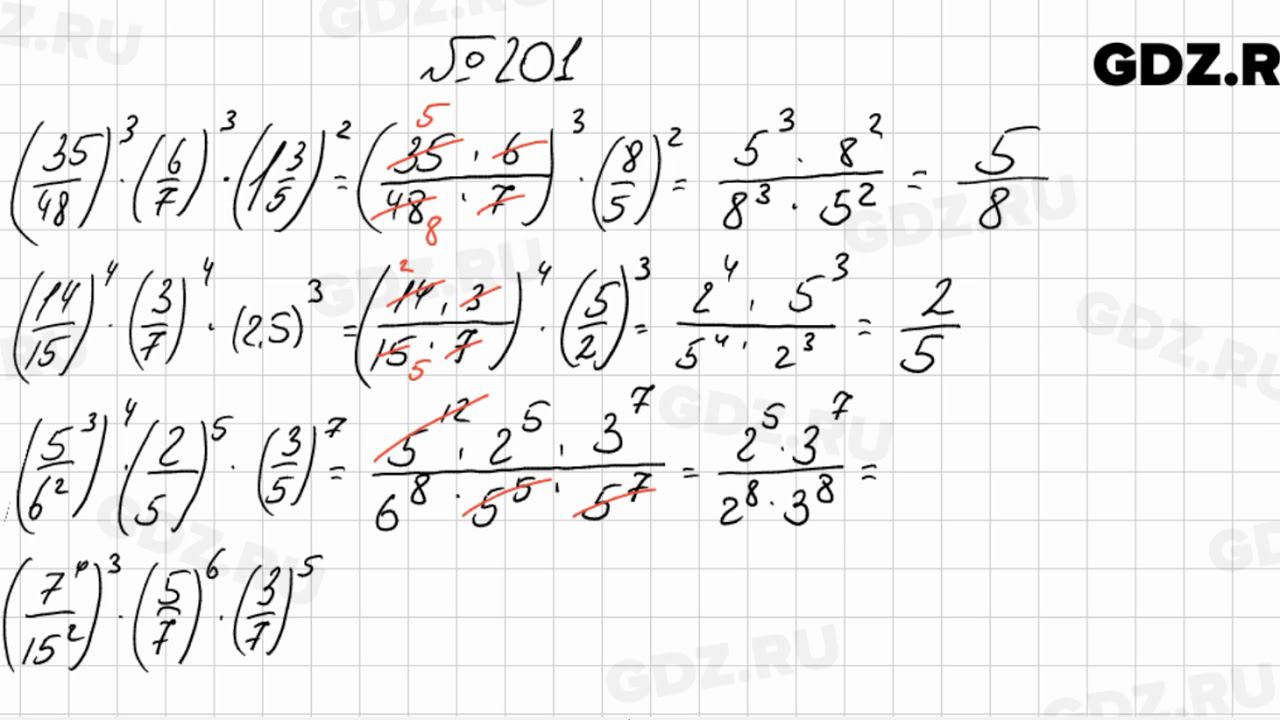 № 201
GDZ.R
(35/48)^3 · (6/7)^3 · (1 3/5)^2 = (35 · 6 / 48 · 7)^3 · (8/5)^2 = 5^3 · 8^2 / 8^3 · 5^2 = 5/8
5
8
(14/15)^4 · (3/7)^4 · (2,5)^3 = (14 · 3 / 15 · 7)^4 · (5/2)^3 = 2^4 · 5^3 / 5^4 · 2^3 = 2/5
2
5
(5^3/6^2)^4 · (2/5)^5 · (3/5)^7 = 5^12 · 2^5 · 3^7 / 6^8 · 5^5 · 5^7 = 2^5 · 3^7 / 2^8 · 3^8 =
(7^4/15^2)^3 · (5/7)^6 · (3/7)^5
GDZ.RU